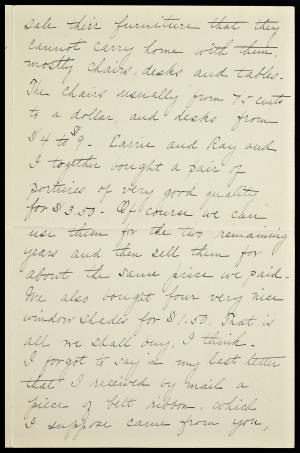 sale their furniture that they
cannot carry home with them,
mostly chairs, desks and tables.
The chairs usually from 75 cents
to a dollar, and desks from
$4 to $9. Carrie and Ray and
I together bought a pair of
portures of very good quality
for $3.50. Of course we can
use them for the two remaining
years and then sell them for
about the same price we paid.
We also bought four very nice
window shades for $1.50. That is
all we shall buy, I think.
I forgot to say in my last letter
that I received by mail a
piece of belt ribbon, which
I suppose came from you,